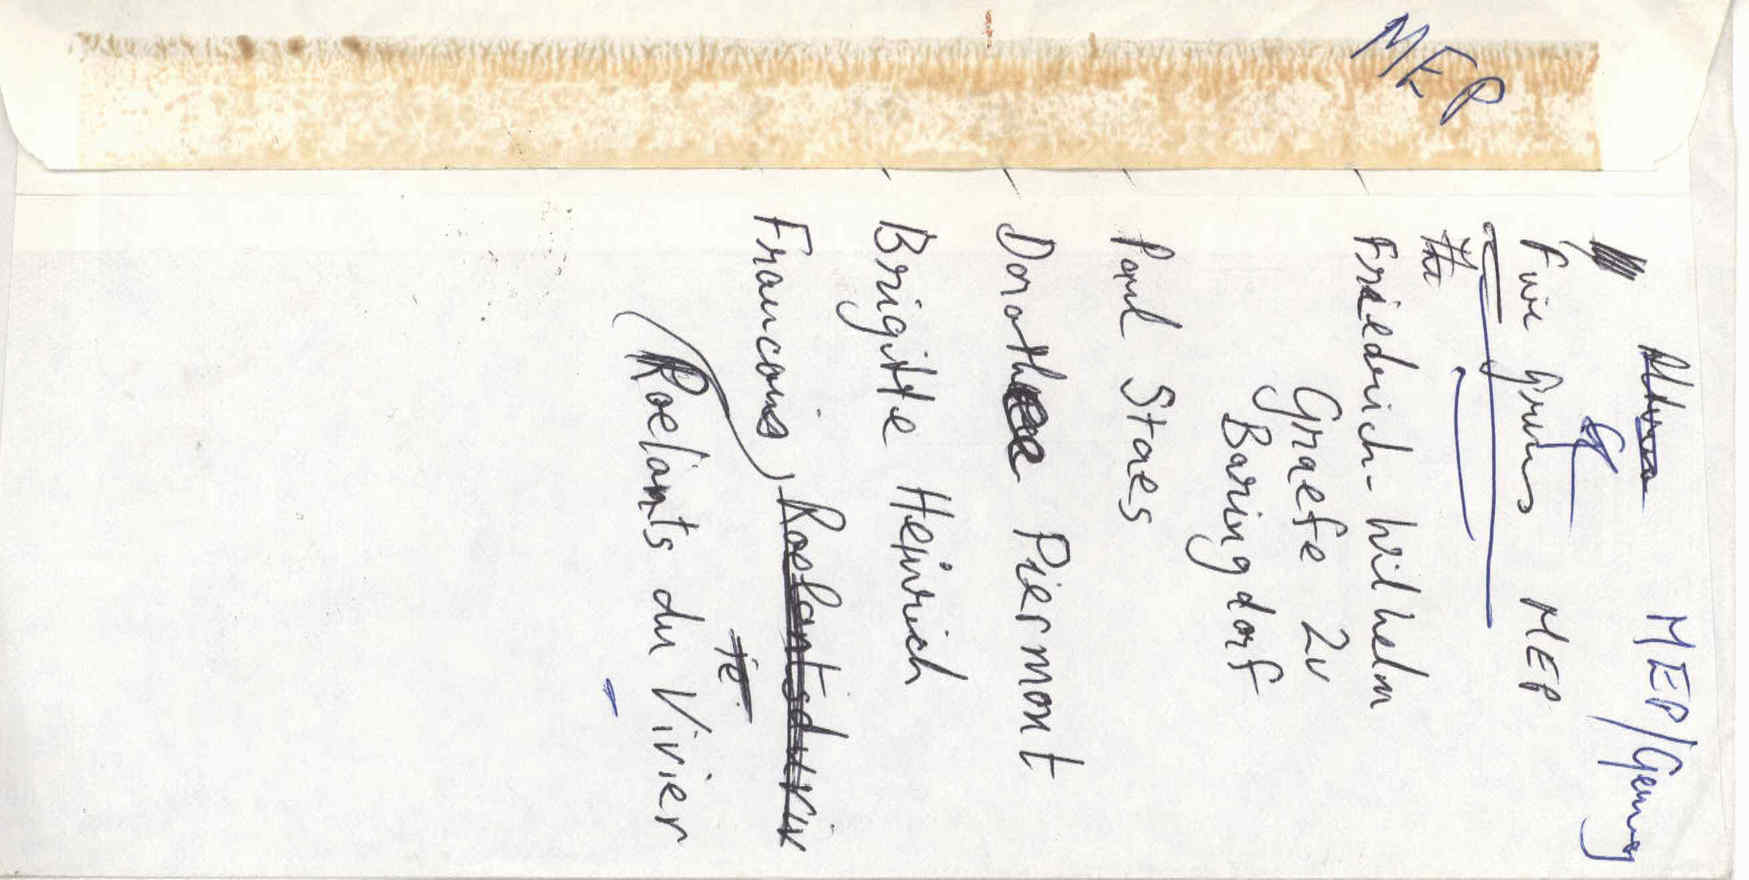 MEP
MEP/Germany
MEP
Friedrich-Wilhelm
Graefe zu
Baringdorf
Paul Staes
Dorothee Piermont
Brigitte Heinrich
Francois, Roelantsduvi
te
(Roelants du Vivier